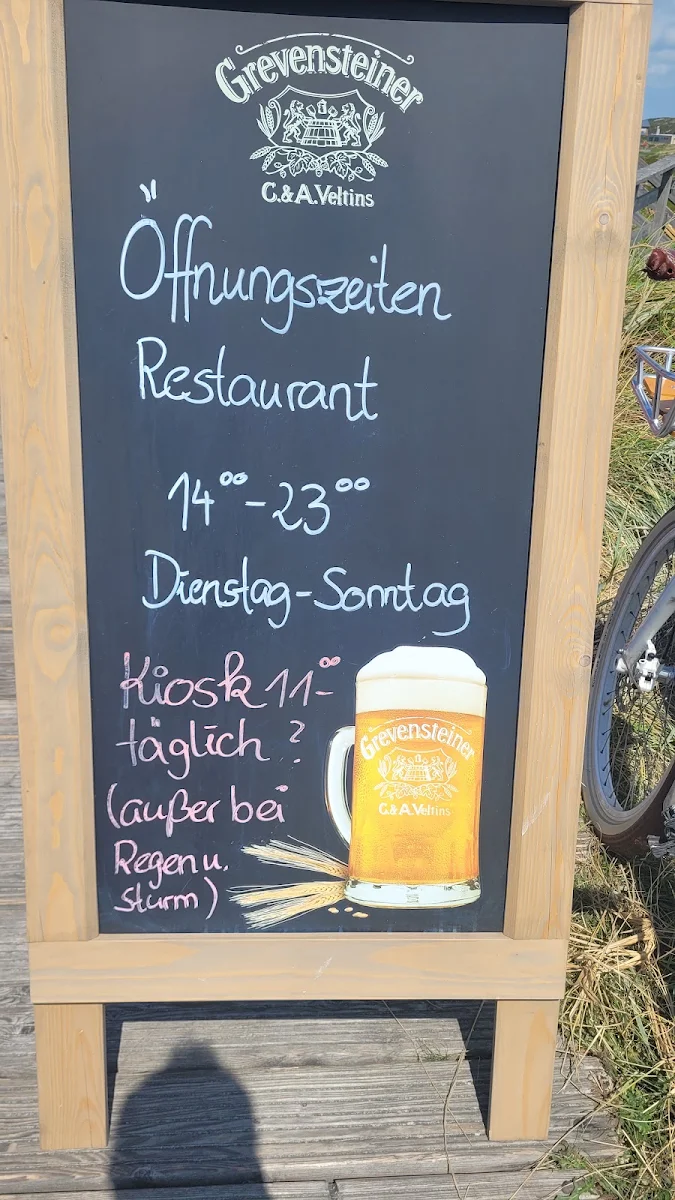 Grevensteiner
C.&A.Veltins
Öffnungszeiten
Restaurant
14⁰⁰-23⁰⁰
Dienstag-Sonntag
Kiosk 11⁰⁰-
täglich ?
(außer bei
Regen u.
Sturm)
Grevensteiner
C.&A.Veltins